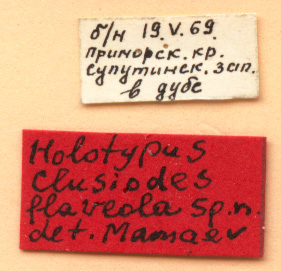 б/н 19.V.69.
приморск. кр.
супутинск. зап.
в дубе
Holotypus
Clusiodes
flaveola sp.n.
det. Mamaev